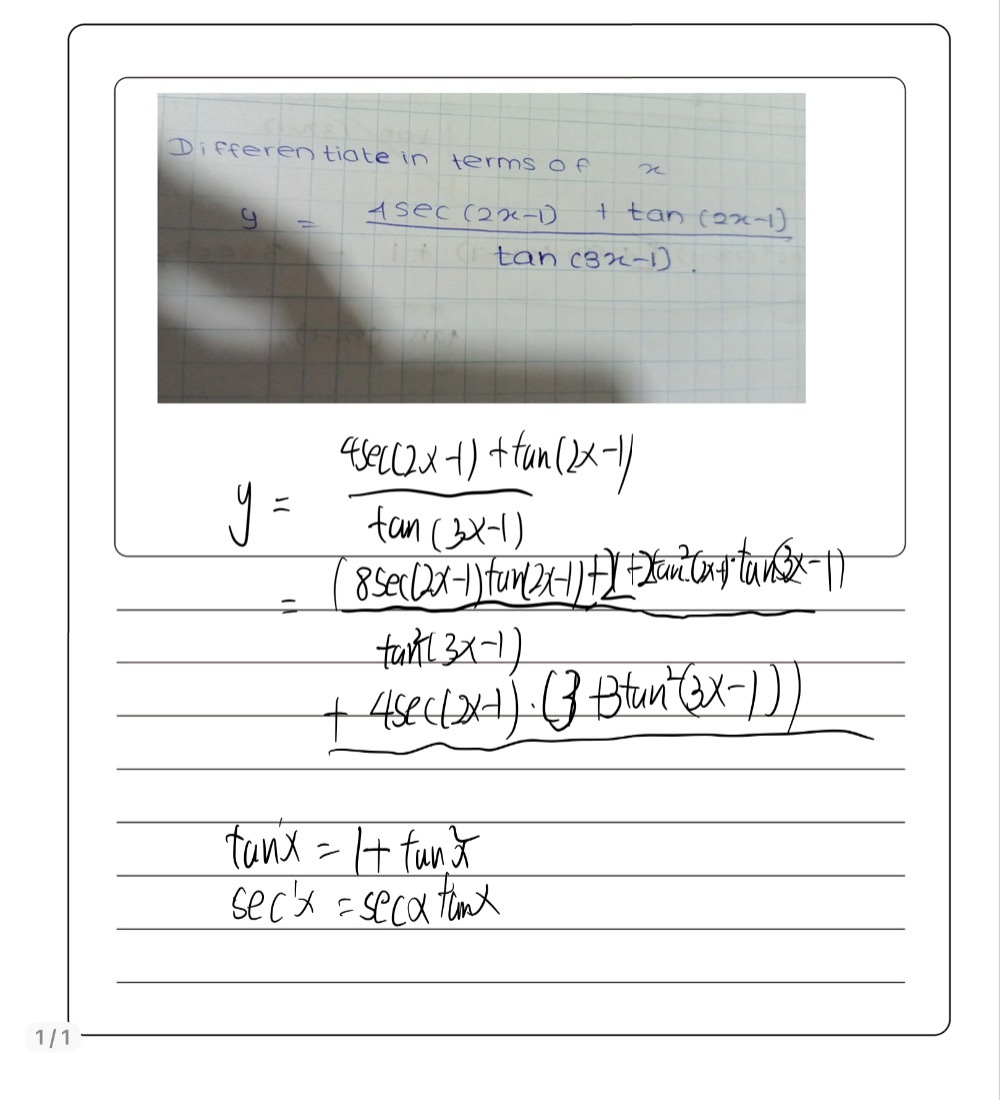 Differentiate in terms of x
y = 4sec(2x-1) + tan(2x-1)
tan(3x-1).
4sec(2x-1) + tan(2x-1)
y =
tan(3x-1)
= (8sec(2x-1)tan(2x-1)+2+2tan²(2x-1)·tan(3x-1)
tan²(3x-1)
+ 4sec(2x-1)·(3+3tan²(3x-1)))
tan'x = 1+tan²x
sec'x = secx tanx
1/1